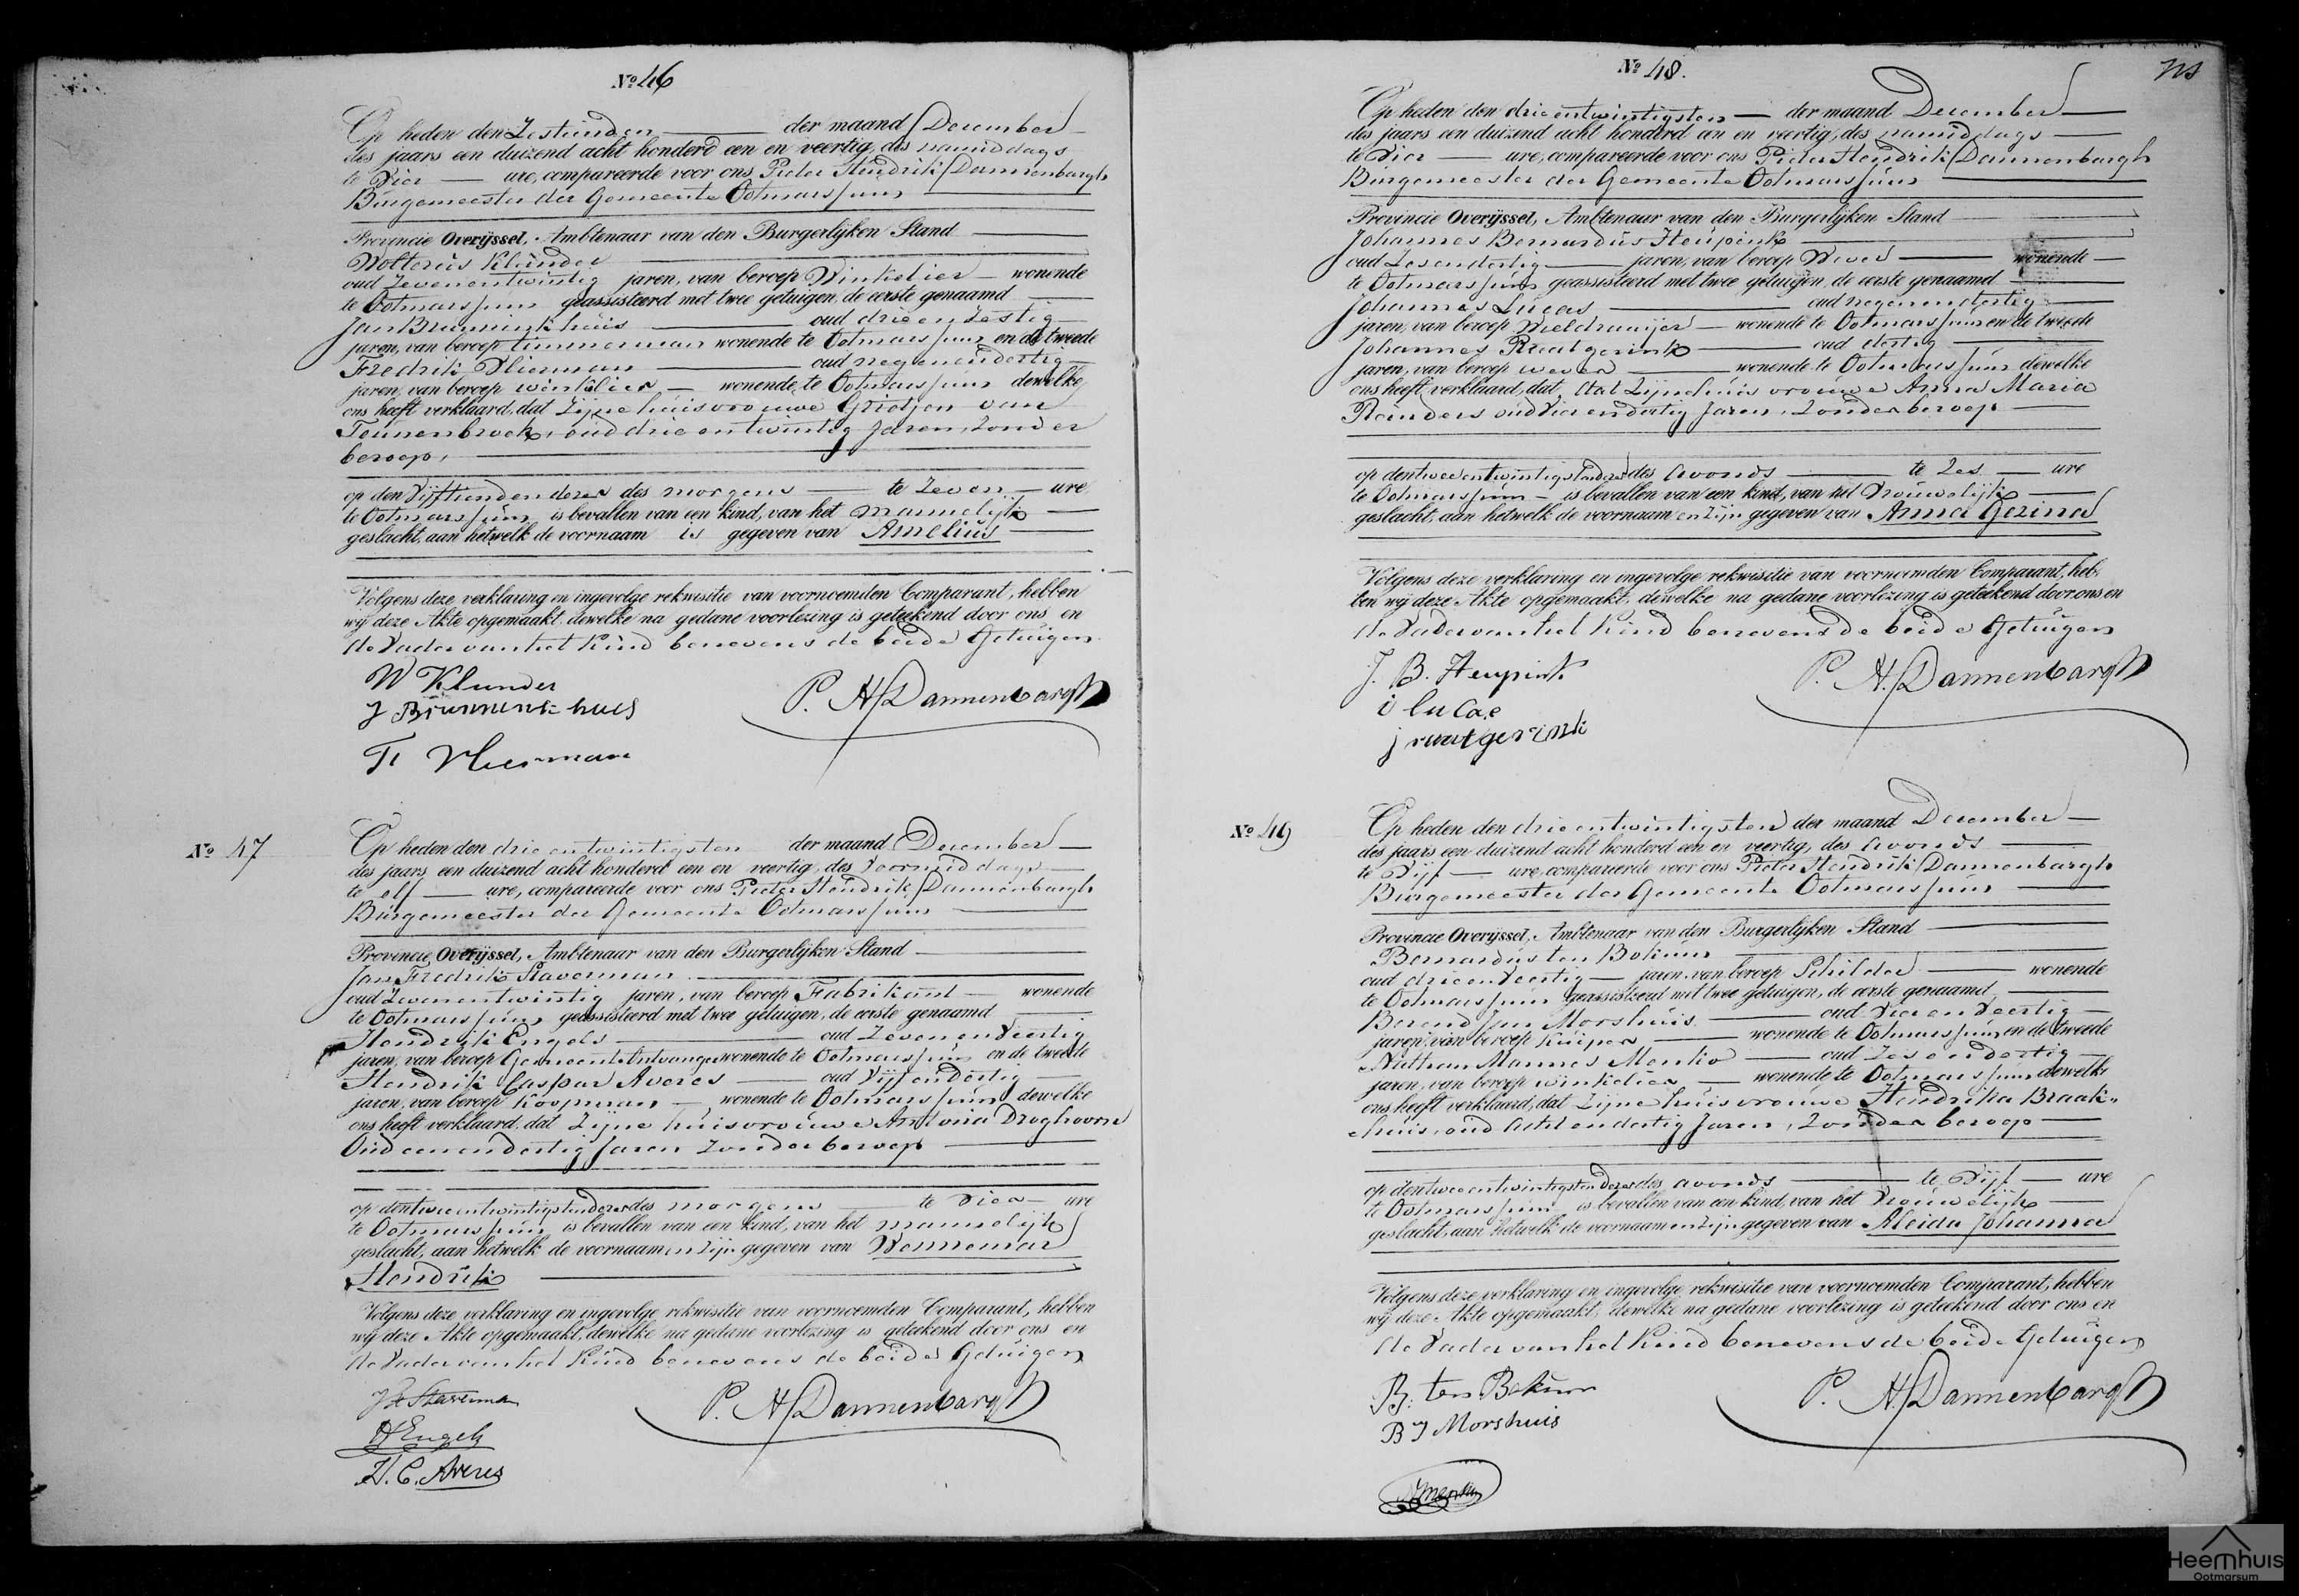 No 46
Op heden den Zestienden der maand December
des jaars een duizend acht honderd een en veertig, des namiddags
te Vier ure, compareerde voor ons Pieter Hendrik Dannenbargh
Burgemeester der Gemeente Ootmarssum
Provincie Overijssel, Ambtenaar van den Burgerlijken Stand
Wolterus Klunder
oud Zevenentwintig jaren, van beroep Winkelier wonende
te Ootmarssum geassisteerd met twee getuigen, de eerste genaamd
Jan Brunninkhuis oud drie en Zestig
jaren, van beroep timmerman wonende te Ootmarssum en de tweede
Fredrik Vlierman oud negenendertig
jaren, van beroep winkelier wonende te Ootmarssum dewelke
ons heeft verklaard, dat Zijne huisvrouwe Grietjen van
Tennenbroek, oud drie en twintig Jaren, Zonder
beroep,
op den Vijftienden dezer des morgens te Zeven ure
te Ootmarssum is bevallen van een kind, van het mannelijk
geslacht, aan hetwelk de voornaam is gegeven van Amelius
Volgens deze verklaring en ingevolge rekwisitie van voornoemden Comparant, hebben
wij deze Akte opgemaakt, dewelke na gedane voorlezing is geteekend door ons en
de Vader van het Kind benevens de beide Getuigen
W Klunder
J Brunninkhues
P. H. Dannenbargh
Fr Vlierman
No 47
Op heden den drie entwintigsten der maand December
des jaars een duizend acht honderd een en veertig, des Voormiddags
te elf ure, compareerde voor ons Pieter Hendrik Dannenbargh
Burgemeester der Gemeente Ootmarssum
Provincie Overijssel, Ambtenaar van den Burgerlijken Stand
Jan Fredrik Staverman
oud Zevenentwintig jaren, van beroep Fabrikant wonende
te Ootmarssum geassisteerd met twee getuigen, de eerste genaamd
Hendrik Engels oud Zevenenveertig
jaren, van beroep Gemeente Ontvanger wonende te Ootmarssum en de tweede
Hendrik Caspar Averes oud Vijfendertig
jaren, van beroep Koopman wonende te Ootmarssum dewelke
ons heeft verklaard, dat Zijne huisvrouwe Antonia Droghoorn
Oud eenendertig Jaren Zonder beroep
op den tweeentwintigsten dezer des morgens te Vier ure
te Ootmarssum is bevallen van een kind, van het mannelijk
geslacht, aan hetwelk de voornaam en zijn gegeven van Wennemar
Hendrik
Volgens deze verklaring en ingevolge rekwisitie van voornoemden Comparant, hebben
wij deze Akte opgemaakt, dewelke na gedane voorlezing is geteekend door ons en
de Vader van het Kind benevens de beide Getuigen
JF Staverman
P. H. Dannenbargh
H Engels
H. C. Averes
No 48.
Op heden den drieentwintigsten der maand December
des jaars een duizend acht honderd een en veertig, des namiddags
te Vier ure, compareerde voor ons Pieter Hendrik Dannenbargh
Burgemeester der Gemeente Ootmarssum
Provincie Overijssel, Ambtenaar van den Burgerlijken Stand
Johannes Bernardus Heupink
oud Zesendertig jaren, van beroep Wever wonende
te Ootmarssum geassisteerd met twee getuigen, de eerste genaamd
Johannes Lucas oud negenendertig
jaren, van beroep Wieldraaijer wonende te Ootmarssum en de tweede
Johannes Ruatgerink oud dertig
jaren, van beroep wever wonende te Ootmarssum dewelke
ons heeft verklaard, dat, dat Zijne huisvrouwe Anna Maria
Reinders oud Vierendertig Jaren, Zonder beroep
op den tweeentwintigsten dezer des avonds te Zes ure
te Ootmarssum is bevallen van een kind, van het Vrouwelijk
geslacht, aan hetwelk de voornaam en zijn gegeven van Anna Gezina
Volgens deze verklaring en ingevolge rekwisitie van voornoemden Comparant, heb-
ben wij deze Akte opgemaakt, dewelke na gedane voorlezing is geteekend door ons en
de Vader van het Kind benevens de beide Getuigen
J. B. Heupink
P. H. Dannenbargh
i lucae
j ruatgerink
No 49
Op heden den drieentwintigsten der maand December
des jaars een duizend acht honderd een en veertig, des avonds
te Vijf ure, compareerde voor ons Pieter Hendrik Dannenbargh
Burgemeester der Gemeente Ootmarssum
Provincie Overijssel, Ambtenaar van den Burgerlijken Stand
Bernardus ten Bokum
oud drieenveertig jaren, van beroep Schilder wonende
te Ootmarssum geassisteerd met twee getuigen, de eerste genaamd
Berend Jan Morshuis oud Vierenveertig
jaren, van beroep Kuiper wonende te Ootmarssum en de tweede
Nathan Mannes Menko oud Zesendertig
jaren, van beroep winkelier wonende te Ootmarssum dewelke
ons heeft verklaard, dat Zijne huisvrouwe Hendrika Braak-
huis, oud Acht endertig Jaren, Zonder beroep
op den tweeentwintigsten dezer des avonds te Vijf ure
te Ootmarssum is bevallen van een kind, van het Vrouwelijk
geslacht, aan hetwelk de voornaam en zijn gegeven van Aleida Johanna
Volgens deze verklaring en ingevolge rekwisitie van voornoemden Comparant, hebben
wij deze Akte opgemaakt, dewelke na gedane voorlezing is geteekend door ons en
de Vader van het Kind benevens de beide Getuigen
B: ten Bokum
P. H. Dannenbargh
B J Morshuis
Heemhuis
Ootmarsum